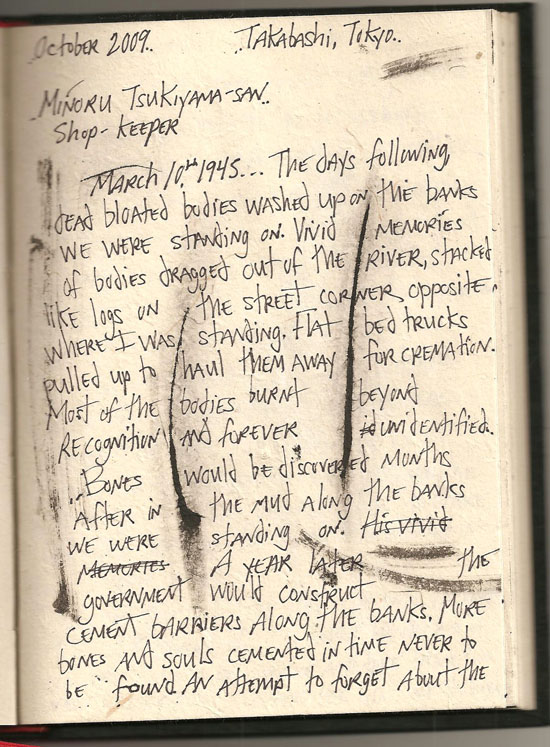 October 2009.. Takabashi, Tokyo..
Minoru Tsukiyama-san..
Shop-keeper
March 10th, 1945... The days following,
dead bloated bodies washed up on the banks
we were standing on. Vivid memories
of bodies dragged out of the river, stacked
like logs on the street corner, opposite.
where I was standing. Flat bed trucks
pulled up to haul them away for cremation.
Most of the bodies burnt beyond
recognition and forever id unidentified.
..Bones would be discovered months
after in the mud along the banks
we were standing on. His vivid
memories A year later the
government would construct
cement barriers along the banks. More
bones and souls cemented in time never to
be found an attempt to forget about the